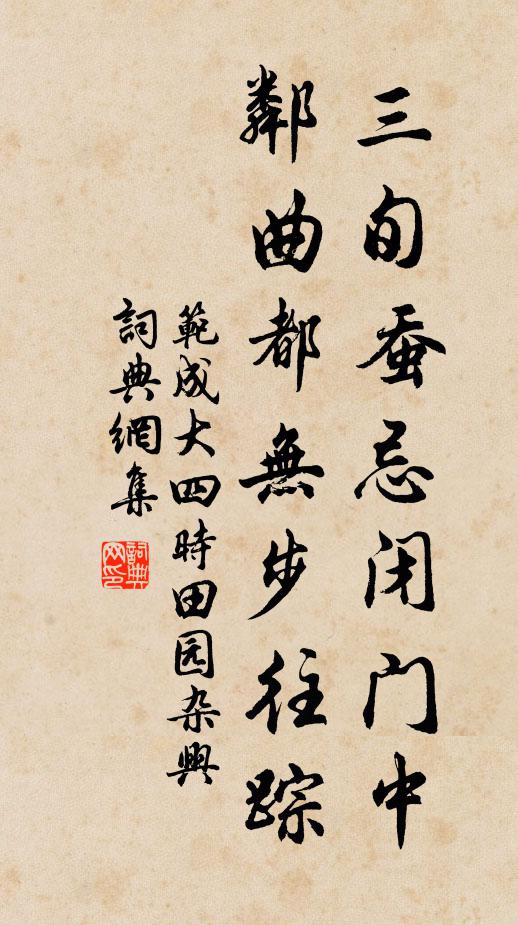 三旬蚕忌闭门中
鄰曲都無步往踪
範成大四時田园杂興
詞典網集
詞典
网印